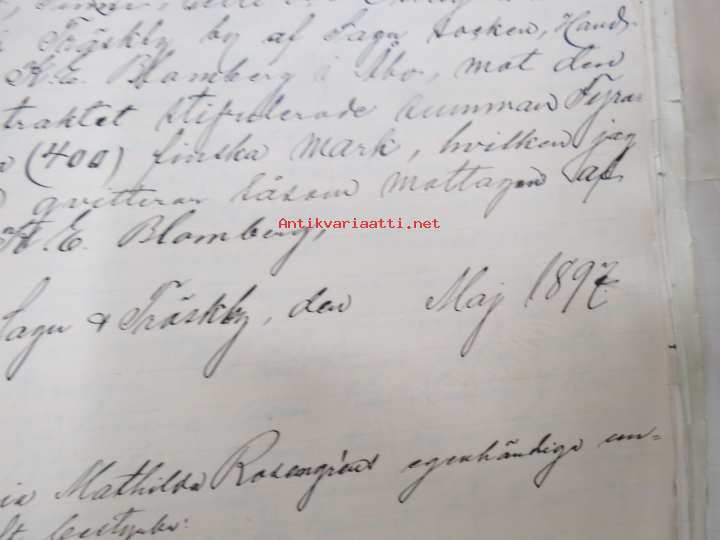 i Träskby by af Sagu socken, Hand-
K. E. Blomberg i Åbo, mot den
traktet stipulerade summan Fyra-
a (400) finska mark, hvilken jag
qvitterar såsom mottagen af
K. E. Blomberg,
Antikvariaatti.net
Sagu & Träskby, den Maj 1897
Mathilda Rosengréns egenhändiga un-